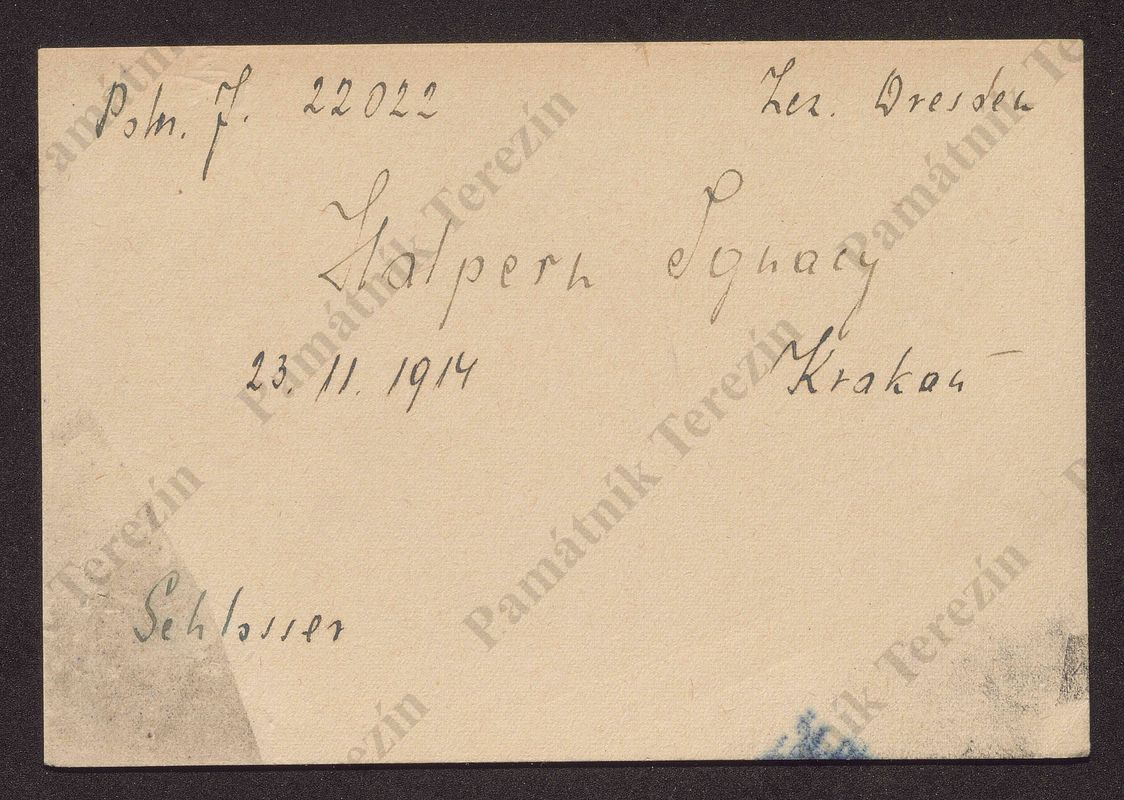 Poln. J. 22022 Zez. Dresden
Halpern Ignacy
23. 11. 1914 Krakau
Schlosser
Památník Terezín